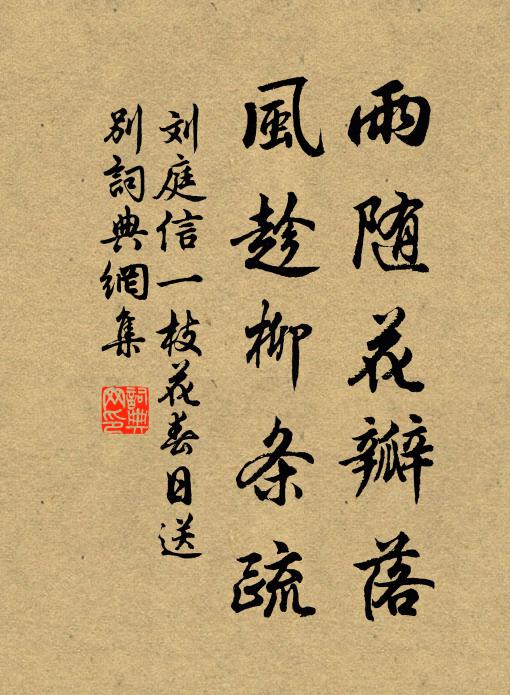 雨随花瓣落
風趁柳条疏
刘庭信一枝花春日送
别詞典網集
詞典网印